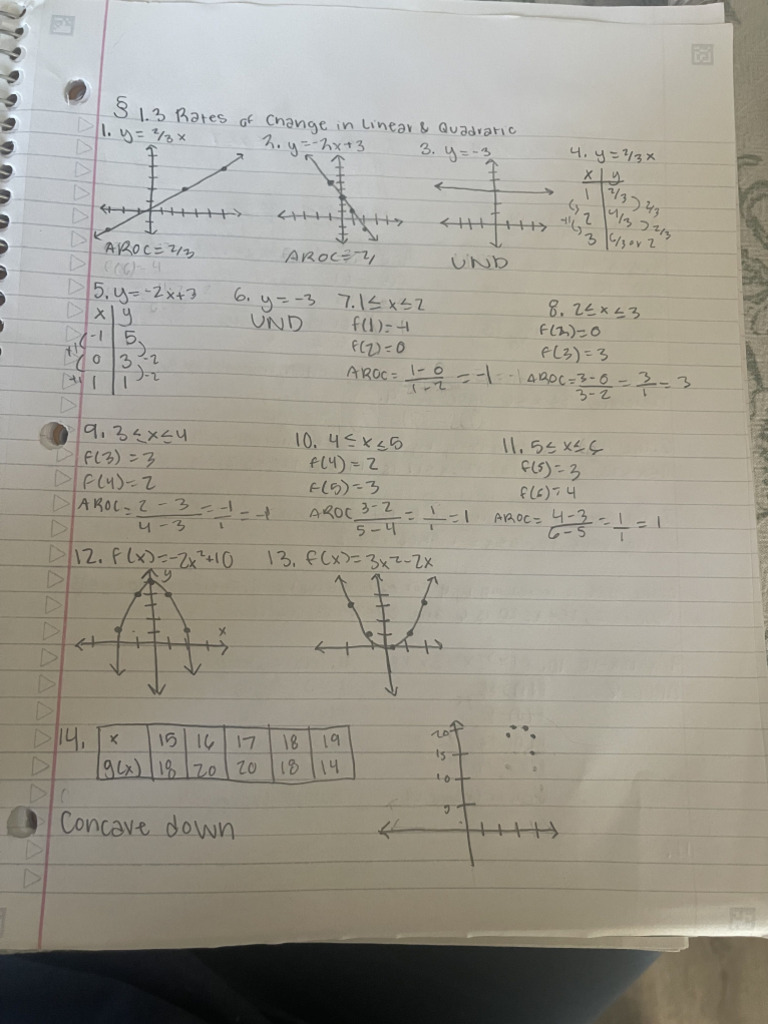 § 1.3 Rates of Change in Linear & Quadratic
1. y = 2/3 x 2. y = -2x+3 3. y = -3 4. y = 2/3 x
x | y
1 | 2/3 ) 2/3
+1 ( 2 | 4/3 ) 2/3
3 | 6/3 or 2
AROC = 2/3 AROC = -2 UND
5. y = -2x+3 6. y = -3 7. 1 ≤ x ≤ 2 8. 2 ≤ x ≤ 3
x | y UND f(1) = -1 f(2) = 0
-1 | 5 f(2) = 0 f(3) = 3
+1 ( 0 | 3 ) -2 AROC = 1-0/1-2 = -1 AROC = 3-0/3-2 = 3/1 = 3
+1 1 | 1 ) -2
9. 3 ≤ x ≤ 4 10. 4 ≤ x ≤ 5 11. 5 ≤ x ≤ 6
f(3) = 3 f(4) = 2 f(5) = 3
f(4) = 2 f(5) = 3 f(6) = 4
AROC = 2-3/4-3 = -1/1 = -1 AROC 3-2/5-4 = 1/1 = 1 AROC = 4-3/6-5 = 1/1 = 1
12. f(x) = -2x²+10 13. f(x) = 3x²-2x
y
x
14. x | 15 | 16 | 17 | 18 | 19
g(x) | 18 | 20 | 20 | 18 | 14
20
15
10
5
Concave down